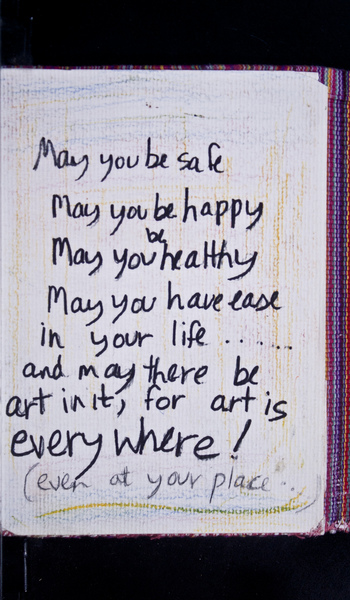 May you be safe
May you be happy
May you be healthy
May you have ease
in your life ......
and may there be
art in it, for art is
everywhere!
(even at your place..